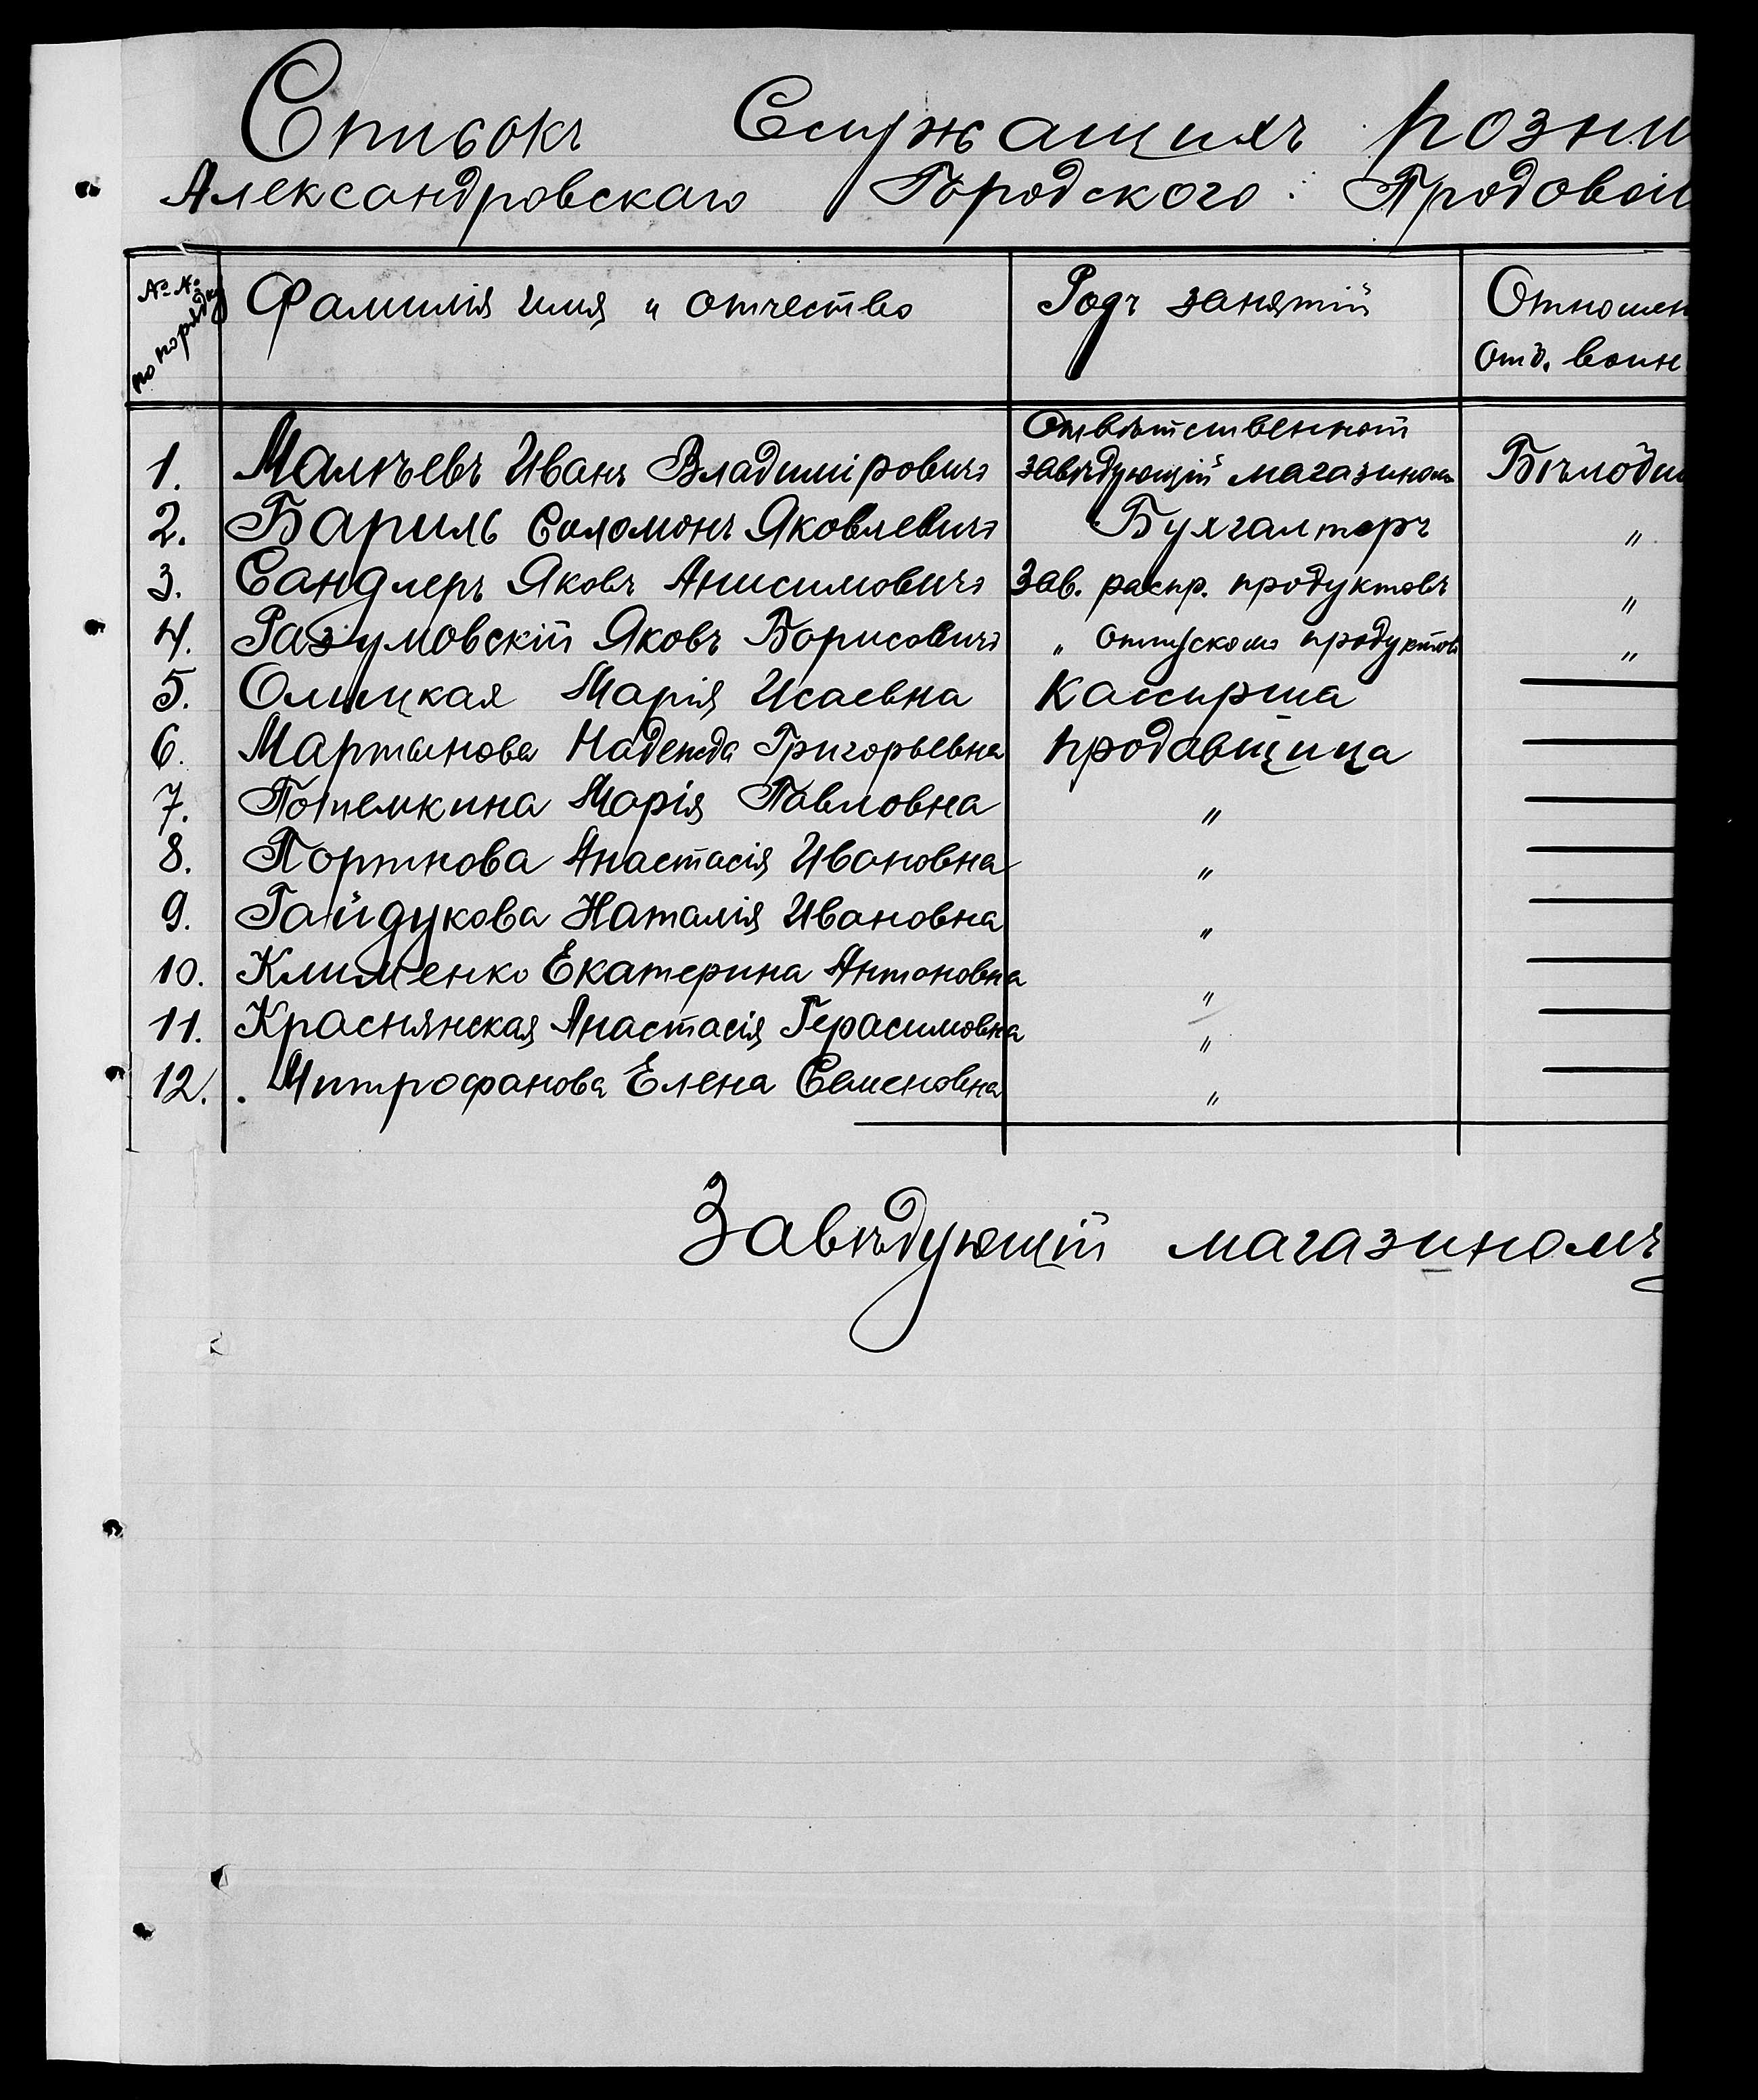 Списокъ Служащихъ розни
Александровскаго Городского Продовол
№ № по порядку Фамилія имя и отчество Родъ занятій Отношен
отб. воин
Отвѣтственный
1. Малѣевъ Иванъ Владиміровичъ завѣдующій магазиномъ Бѣлоби
2. Бариль Соломонъ Яковлевичъ Бухгалтеръ "
3. Сандлеръ Яковъ Анисимовичъ Зав. распр. продуктовъ "
4. Разумовскій Яковъ Борисовичъ " отпускомъ продуктовъ "
5. Олицкая Марія Исаевна Кассирша —
6. Мартынова Надежда Григорьевна продавщица —
7. Потемкина Марія Павловна " —
8. Портнова Анастасія Ивановна " —
9. Гайдукова Наталія Ивановна " —
10. Клименко Екатерина Антоновна " —
11. Краснянская Анастасія Герасимовна " —
12. Митрофанова Елена Семеновна " —
Завѣдующій магазиномъ